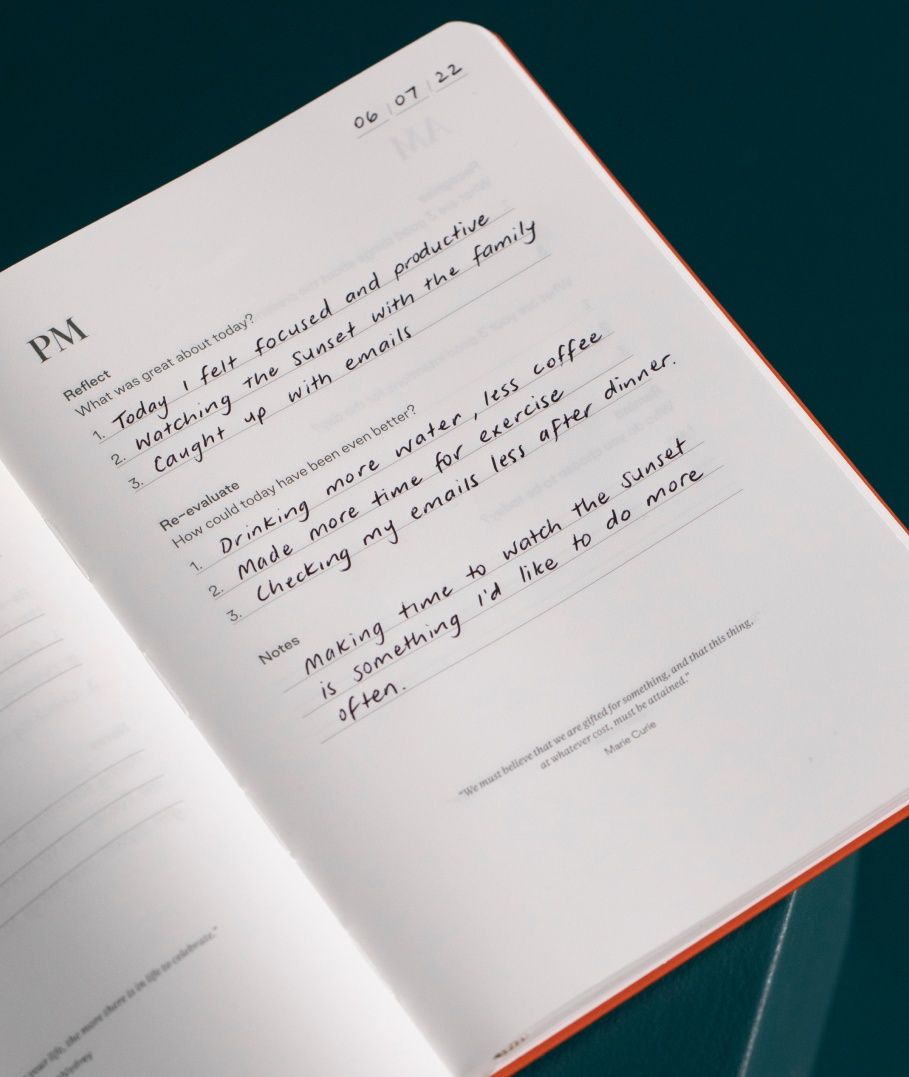 06 / 07 / 22
PM
Reflect
What was great about today?
1. Today I felt focused and productive
2. Watching the sunset with the family
3. Caught up with emails
Re-evaluate
How could today have been even better?
1. Drinking more water, less coffee
2. Made more time for exercise
3. Checking my emails less after dinner.
Notes
Making time to watch the sunset
is something i'd like to do more
often.
"We must believe that we are gifted for something, and that this thing,
at whatever cost, must be attained."
Marie Curie
your life, the more there is in life to celebrate."